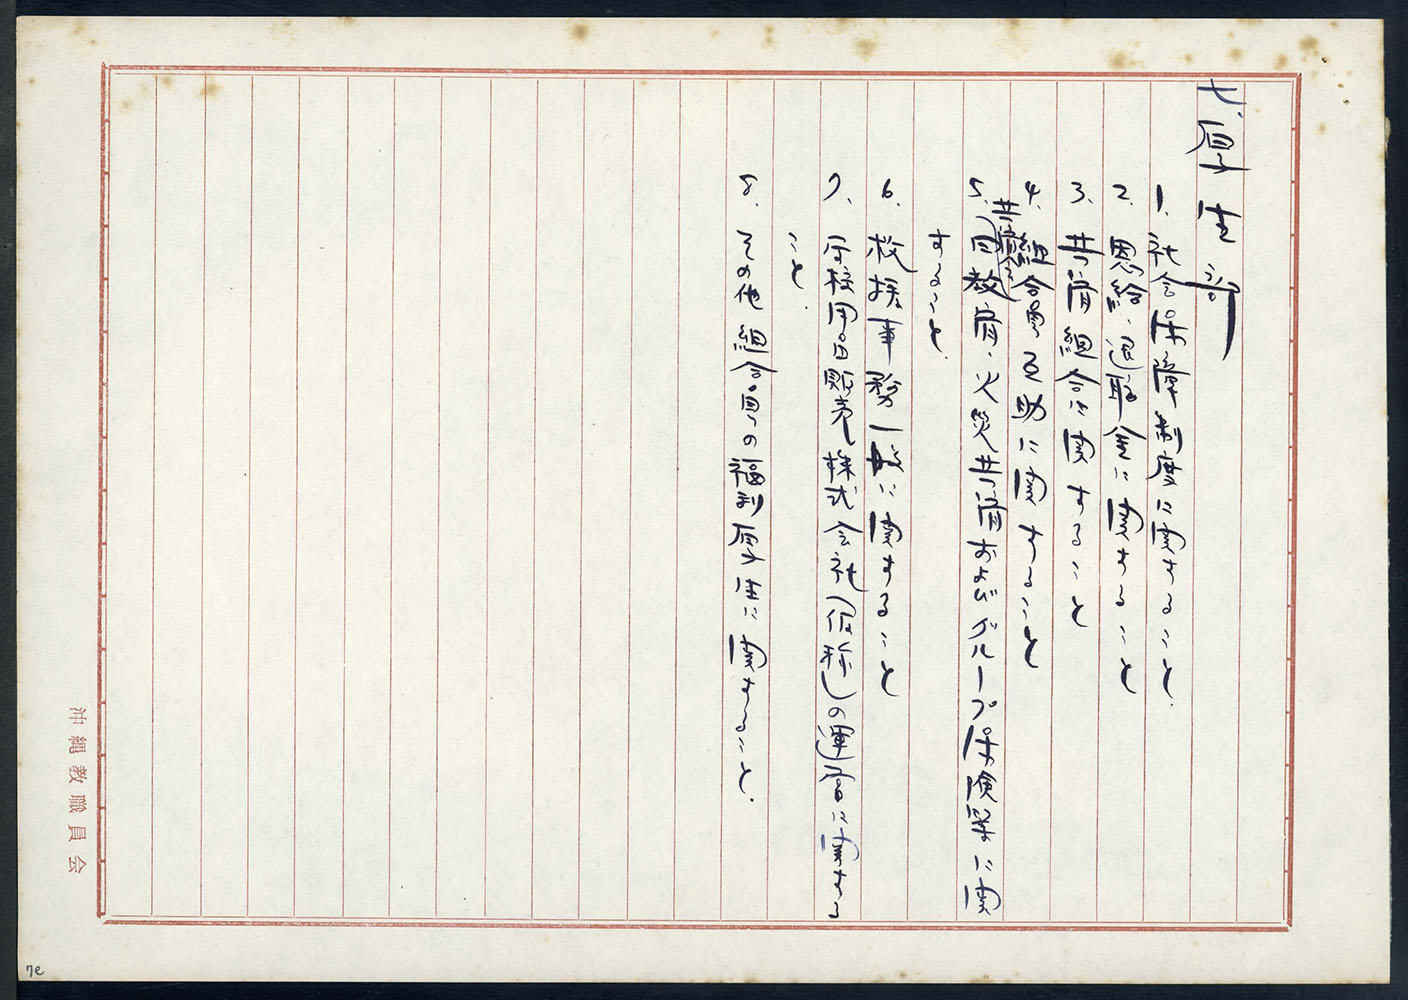 七、厚生部
1. 社会保障制度に関すること.
2. 恩給、退職金に関すること
3. 共済組合に関すること
4. 組合員互助に関すること
共済会
5. 日教済、火災共済およびグループ保険業に関
すること.
6. 救援事務一般に関すること
7、学校用品販売株式会社(仮称)の運営に関する
こと.
8. その他組合員の福利厚生に関すること.
沖縄教職員会
7e